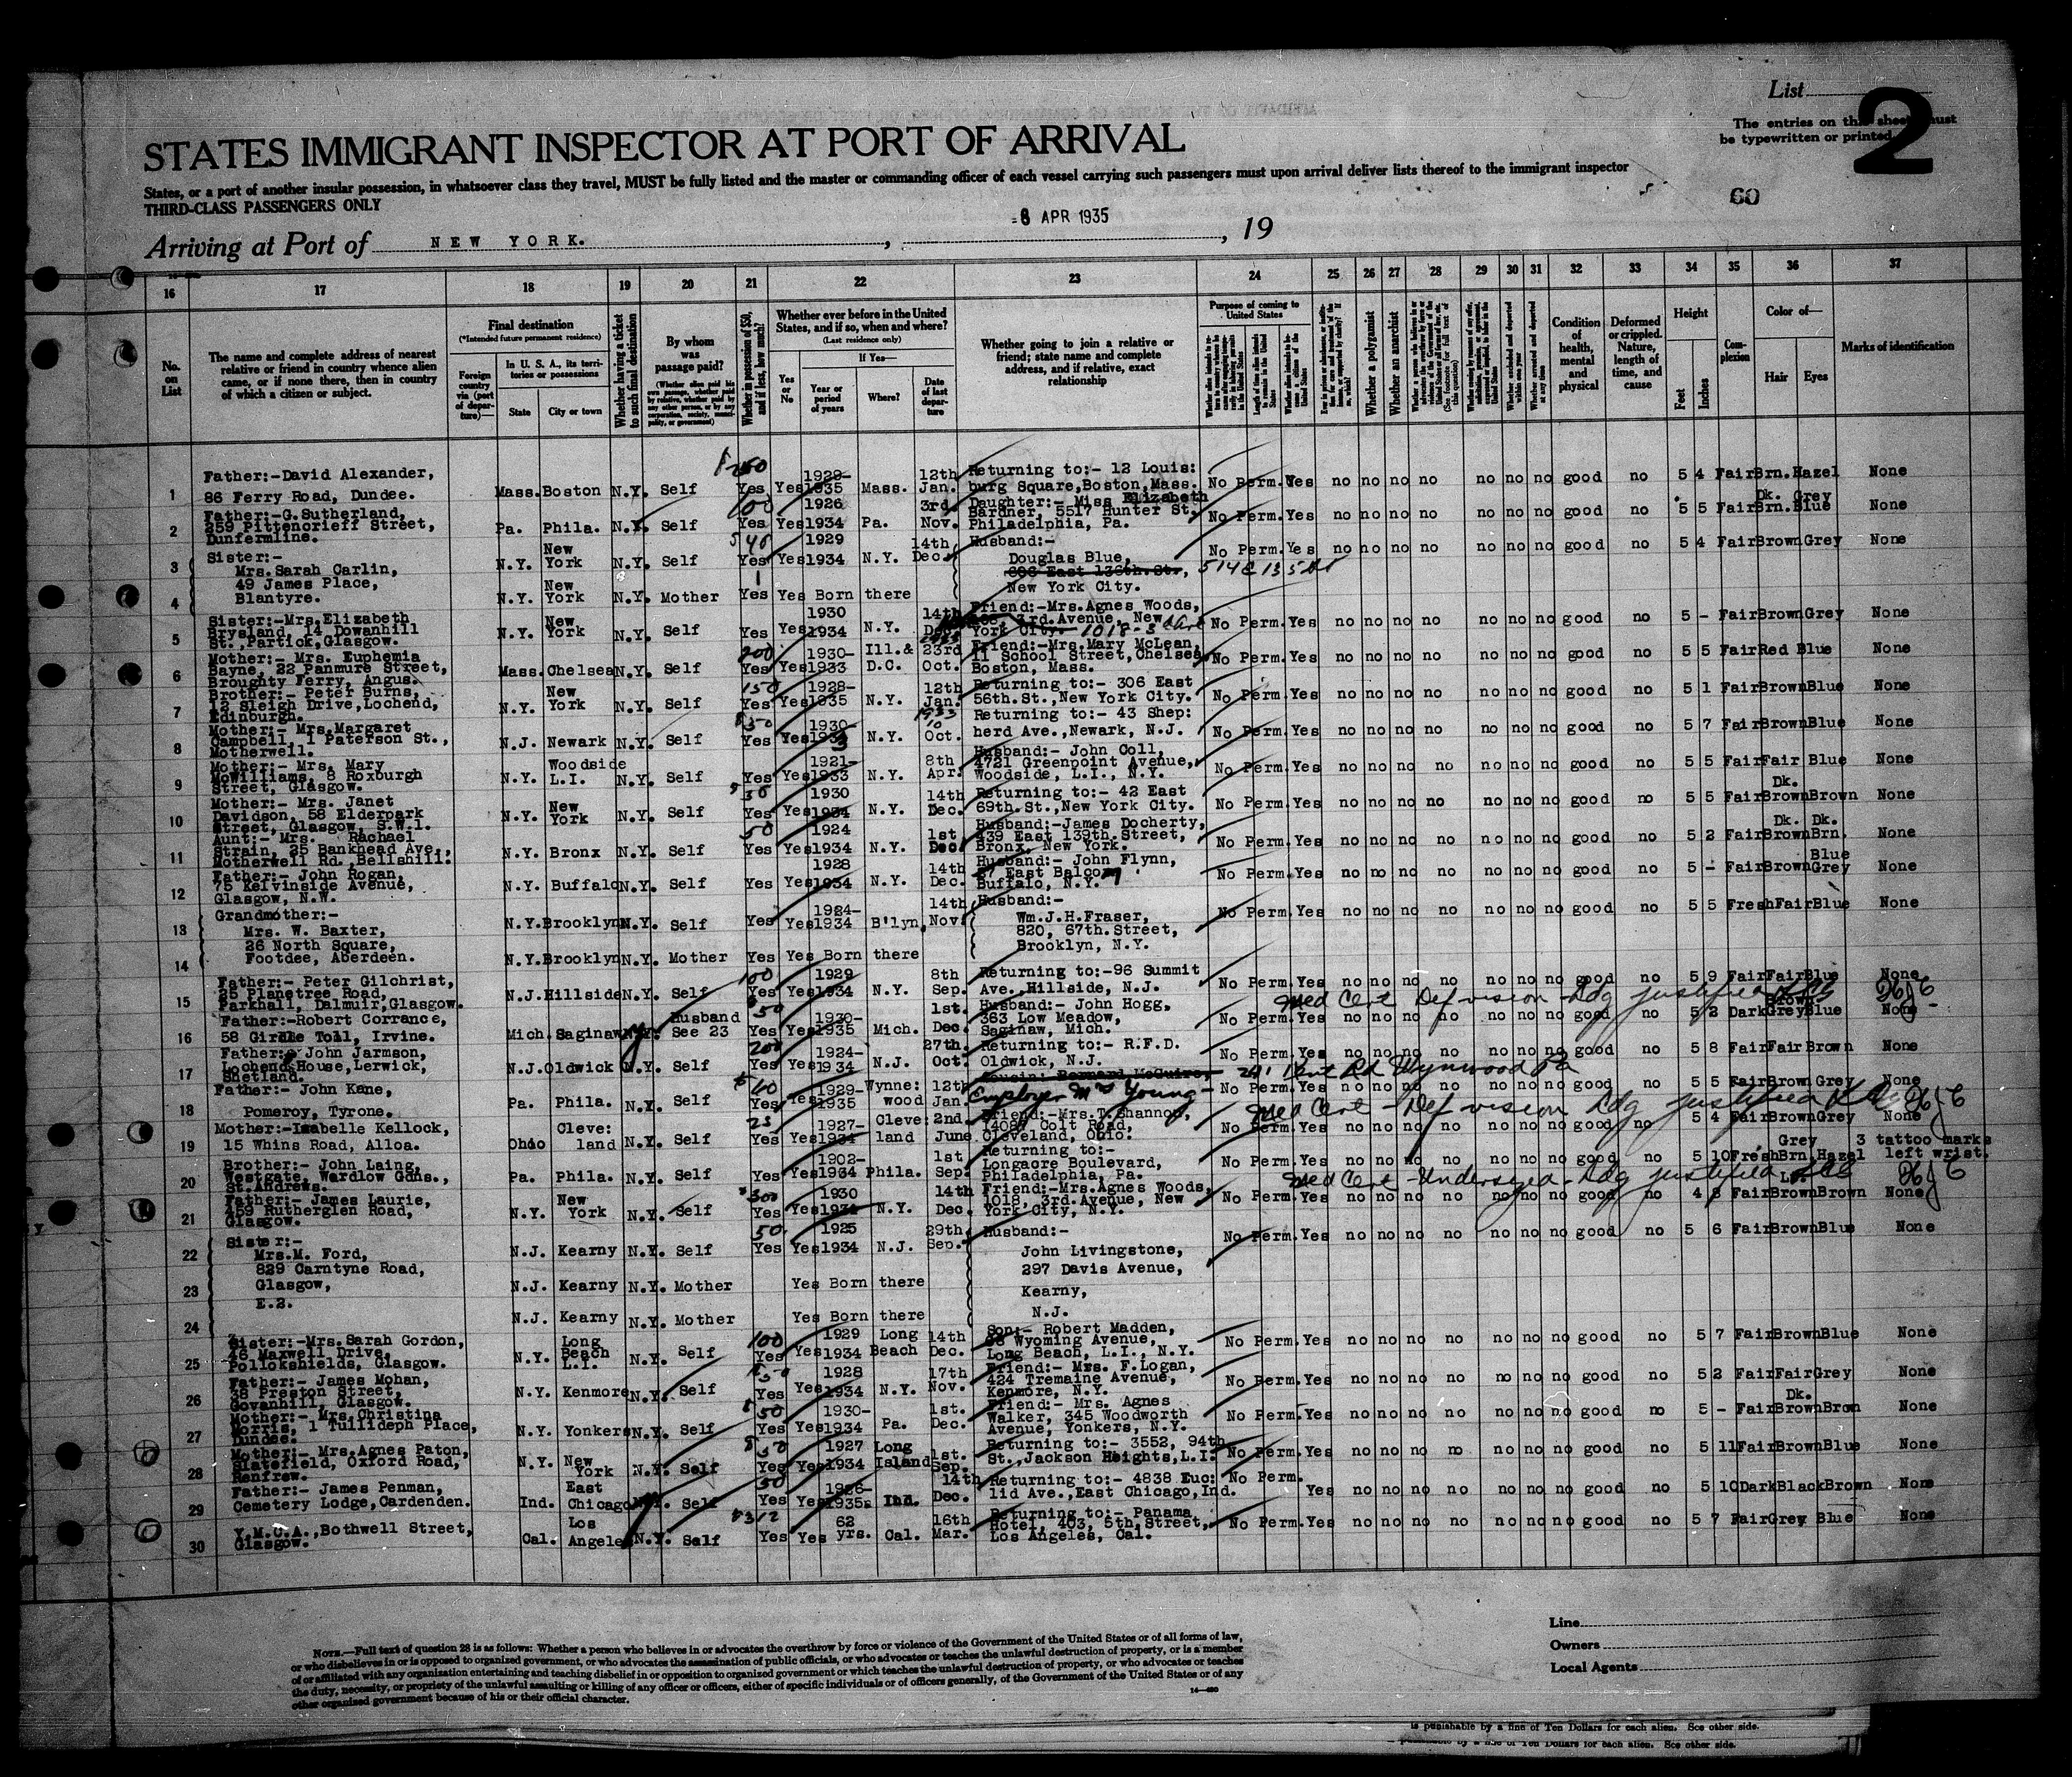 List
2
The entries on this sheet must
be typewritten or printed
STATES IMMIGRANT INSPECTOR AT PORT OF ARRIVAL
States, or a port of another insular possession, in whatsoever class they travel, MUST be fully listed and the master or commanding officer of each vessel carrying such passengers must upon arrival deliver lists thereof to the immigrant inspector
THIRD-CLASS PASSENGERS ONLY
60
Arriving at Port of NEW YORK. , 8 APR 1935 , 19
16 17 18 19 20 21 22 23 24 25 26 27 28 29 30 31 32 33 34 35 36 37
No. on List
The name and complete address of nearest
relative or friend in country whence alien
came, or if none there, then in country
of which a citizen or subject.
Final destination
(*Intended future permanent residence)
Foreign country via (port of departure)—
In U. S. A., its territories or possessions
State
City or town
Whether having a ticket to such final destination
By whom was passage paid?
Whether in possession of $50, and if less, how much?
Whether ever before in the United
States, and if so, when and where?
(Last residence only)
Yes or No
If Yes—
Year or period of years
Where?
Date of last departure
Whether going to join a relative or
friend; state name and complete
address, and if relative, exact
relationship
Purpose of coming to United States
Whether a polygamist
Whether an anarchist
Condition of health, mental and physical
Deformed or crippled. Nature, length of time, and cause
Height
Feet
Inches
Complexion
Color of—
Hair
Eyes
Marks of identification
1 Father:-David Alexander, 86 Ferry Road, Dundee. Mass. Boston N.Y. Self Yes Yes 1929-1935 Mass. 12th Jan. Returning to:- 12 Louis: burg Square, Boston, Mass. No Perm. Yes no no no no no no no good no 5 4 Fair Brn. Hazel None
2 Father:-G. Sutherland, 259 Pittencrieff Street, Dunfermline. Pa. Phila. N.Y. Self 100 Yes Yes 1926 1934 Pa. 3rd Nov. Daughter:- Miss Elizabeth Gardner, 5517 Hunter St. Philadelphia, Pa. No Perm. Yes no no no no no no no good no 5 5 Fair Dk. Brn. Grey Blue None
3 Sister:- Mrs. Sarah Carlin, 49 James Place, Blantyre. N.Y. New York N.Y. Self Yes Yes 1929 1934 N.Y. 14th Dec. Husband:- Douglas Blue, 606 East 136th. St., 514 E 135 St New York City. No Perm. Yes no no no no no no no good no 5 4 Fair Brown Grey None
4 N.Y. New York N.Y. Mother Yes Yes Born there
5 Sister:-Mrs. Elizabeth Brysland, 14 Dowanhill St., Partick, Glasgow. N.Y. New York N.Y. Self Yes Yes 1930 1934 N.Y. 14th Dec. Friend:-Mrs. Agnes Woods, 3rd. Avenue, New York City. 1018-3 Ave No Perm. Yes no no no no no no no good no 5 - Fair Brown Grey None
6 Mother:- Mrs. Euphemia Bayne, 22 Panmure Street, Broughty Ferry, Angus. Mass. Chelsea N.Y. Self 200 Yes Yes 1930-1933 Ill. & D.C. 23rd Oct. Friend:-Mrs. Mary McLean, 11 School Street, Chelsea, Boston, Mass. No Perm. Yes no no no no no no no good no 5 5 Fair Red Blue None
7 Brother:- Peter Burns, 12 Sleigh Drive, Lochend, Edinburgh. N.Y. New York N.Y. Self 150 Yes Yes 1928-1935 N.Y. 12th Jan. Returning to:- 306 East 56th. St., New York City. No Perm. Yes no no no no no no no good no 5 1 Fair Brown Blue None
8 Mother:- Mrs. Margaret Campbell, 1 Paterson St., Motherwell. N.J. Newark N.Y. Self Yes Yes 1930- N.Y. 1933 10 Oct. Returning to:- 43 Shep: herd Ave., Newark, N.J. No Perm. Yes no no no no no no no good no 5 7 Fair Brown Blue None
9 Mother:- Mrs. Mary McWilliams, 8 Roxburgh Street, Glasgow. N.Y. Woodside L.I. N.Y. Self Yes Yes 1921-1933 N.Y. 8th Apr. Husband:- John Coll, 4721 Greenpoint Avenue, Woodside, L.I., N.Y. No Perm. Yes no no no no no no no good no 5 5 Fair Fair Blue None
10 Mother:- Mrs. Janet Davidson, 58 Elderpark Street, Glasgow, S.W.1. N.Y. New York N.Y. Self Yes Yes 1930 1934 N.Y. 14th Dec. Returning to:- 42 East 69th. St., New York City. No Perm. Yes no no no no no no no good no 5 5 Fair Dk. Brown Brown None
11 Aunt:- Mrs. Rachael Strain, 25 Bankhead Ave., Motherwell Rd., Bellshill. N.Y. Bronx N.Y. Self 50 Yes Yes 1924 1934 N.Y. 1st. Dec. Husband:-James Docherty, 439 East 139th. Street, Bronx, New York. No Perm. Yes no no no no no no no good no 5 2 Fair Dk. Brown Dk. Brn. None
12 Father:- John Rogan, 75 Kelvinside Avenue, Glasgow, N.W. N.Y. Buffalo N.Y. Self Yes Yes 1928 1934 N.Y. 14th Dec. Husband:- John Flynn, 27 East Balcom Buffalo, N.Y. No Perm. Yes no no no no no no no good no 5 - Fair Brown Blue Grey None
13 Grandmother:- Mrs. W. Baxter, 26 North Square, Footdee, Aberdeen. N.Y. Brooklyn N.Y. Self Yes Yes 1924-1934 B'lyn 14th Nov. Husband:- Wm. J.H. Fraser, 820, 67th. Street, Brooklyn, N.Y. No Perm. Yes no no no no no no no good no 5 5 Fresh Fair Blue None
14 N.Y. Brooklyn N.Y. Mother Yes Yes Born there
15 Father:- Peter Gilchrist, 25 Planetree Road, Parkhall, Dalmuir, Glasgow. N.J. Hillside N.Y. Self 100 Yes Yes 1929 1934 N.Y. 8th Sep. Returning to:-96 Summit Ave., Hillside, N.J. No Perm. Yes no no no no no no no good no 5 9 Fair Fair Blue None
Med Cert Def vision - Ldg justified
16 Father:-Robert Corrance, 58 Girdle Toll, Irvine. Mich. Saginaw N.Y. Husband See 23 50 Yes Yes 1930-1935 Mich. 1st. Dec. Husband:- John Hogg, 363 Low Meadow, Saginaw, Mich. No Perm. Yes no no no no no no no good no 5 2 Dark Brown Grey Blue None
17 Father:- John Jarmson, Lochend House, Lerwick, Shetland. N.J. Oldwick N.Y. Self 200 Yes Yes 1924-1934 N.J. 27th. Oct. Returning to:- R.F.D. Oldwick, N.J. No Perm. Yes no no no no no no no good no 5 8 Fair Fair Brown None
18 Father:- John Kane, Pomeroy, Tyrone. Pa. Phila. N.Y. Self 60 Yes Yes 1929-1935 Wynne: wood 12th Jan. Cousin: Bernard McGuire, Employer Mrs Young - Rd Wynwood Pa No Perm. Yes no no no no no no no good no 5 5 Fair Brown Grey None
Med Cert - Def vision Ldg justified
19 Mother:-Isabelle Kellock, 15 Whins Road, Alloa. Ohio Cleve: land N.Y. Self 25 Yes Yes 1927-1934 Cleve: land 2nd. June Friend:-Mrs. T. Shannon, 14087 Colt Road, Cleveland, Ohio. No Perm. Yes no no no no no no no good no 5 4 Fair Brown Grey None
20 Brother:- John Laing, Westgate, Wardlow Gdns., St. Andrews. Pa. Phila. N.Y. Self Yes Yes 1902-1934 Phila. 1st. Sep. Returning to:- Longacre Boulevard, Philadelphia, Pa. No Perm. Yes no no no no no no no good no 5 10 Fresh Grey Brn. Hazel 3 tattoo marks left wrist.
Med Cert - Undersized - Ldg justified
21 Father:- James Laurie, 459 Rutherglen Road, Glasgow. N.Y. New York N.Y. Self 300 Yes Yes 1930 1934 N.Y. 14th Dec. Friend:-Mrs. Agnes Woods, 1018, 3rd. Avenue, New York City, N.Y. No Perm. Yes no no no no no no no good no 4 8 Fair Lt. Brown Brown None
22 Sister:- Mrs. M. Ford, 829 Carntyne Road, Glasgow, E.2. N.J. Kearny N.Y. Self 50 Yes Yes 1925 1934 N.J. 29th. Sep. Husband:- John Livingstone, 297 Davis Avenue, Kearny, N.J. No Perm. Yes no no no no no no no good no 5 6 Fair Brown Blue None
23 N.J. Kearny N.Y. Mother Yes Born there
24 N.J. Kearny N.Y. Mother Yes Born there
25 Sister:-Mrs. Sarah Gordon, 46 Maxwell Drive, Pollokshields, Glasgow. N.Y. Long Beach L.I. N.Y. Self 100 Yes Yes 1929 1934 Long Beach 14th Dec. Son:- Robert Madden, Wyoming Avenue, Long Beach, L.I., N.Y. No Perm. Yes no no no no no no no good no 5 7 Fair Brown Blue None
26 Father:- James Mohan, 38 Preston Street, Govanhill, Glasgow. N.Y. Kenmore N.Y. Self Yes Yes 1928 1934 N.Y. 17th Nov. Friend:- Mrs. F. Logan, 424 Tremaine Avenue, Kenmore, N.Y. No Perm. Yes no no no no no no no good no 5 2 Fair Fair Grey None
27 Mother:- Mrs. Christina Norris, 1 Tullideph Place, Dundee. N.Y. Yonkers N.Y. Self 50 Yes Yes 1930-1934 Pa. 1st. Dec. Friend:- Mrs. Agnes Walker, 345 Woodworth Avenue, Yonkers, N.Y. No Perm. Yes no no no no no no no good no 5 - Fair Dk. Brown Brown None
28 Mother:- Mrs. Agnes Paton, Slatefield, Oxford Road, Renfrew. N.Y. New York N.Y. Self 50 Yes Yes 1927 1934 Long Island 1st. Sep. Returning to:- 3552, 94th St., Jackson Heights, L.I. No Perm. Yes no no no no no no no good no 5 11 Fair Brown Blue None
29 Father:- James Penman, Cemetery Lodge, Cardenden. Ind. East Chicago N.Y. Self 50 Yes Yes 1926-1935 Ind. 14th Dec. Returning to:- 4838 Euc: lid Ave., East Chicago, Ind. No Perm. Yes no no no no no no no good no 5 10 Dark Black Brown None
30 Y.M.C.A., Bothwell Street, Glasgow. Cal. Los Angeles N.Y. Self $312 Yes Yes 62 yrs. Cal. 16th Mar. Returning to:- Panama Hotel, 403, 5th. Street, Los Angeles, Cal. No Perm. Yes no no no no no no no good no 5 7 Fair Grey Blue None
Line
Owners
Local Agents
NOTE.—Full text of question 28 is as follows: Whether a person who believes in or advocates the overthrow by force or violence of the Government of the United States or of all forms of law,
or who disbelieves in or is opposed to organized government, or who advocates the assassination of public officials, or who advocates or teaches the unlawful destruction of property, or is a member
of or affiliated with any organization entertaining and teaching disbelief in or opposition to organized government or which teaches the unlawful destruction of property, or who advocates or teaches
the duty, necessity, or propriety of the unlawful assaulting or killing of any officer or officers, either of specific individuals or of officers generally, of the Government of the United States or of any
other organized government because of his or their official character.
is punishable by a fine of Ten Dollars for each alien. See other side.
punishable by a fine of Ten Dollars for each alien. See other side.